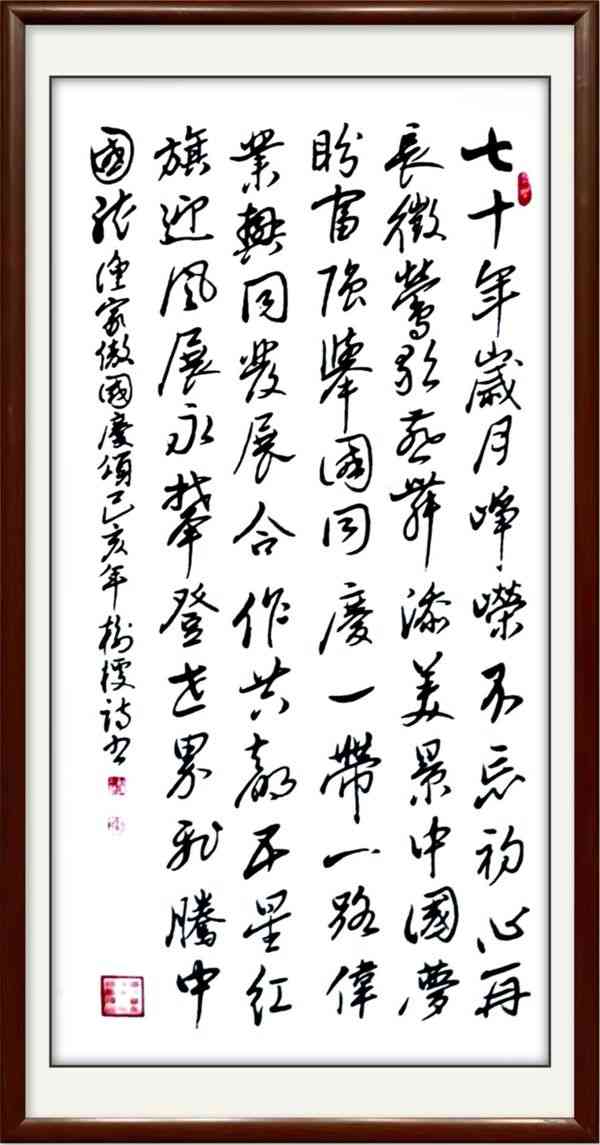 七十年歲月崢嶸不忘初心再
長徵鶯歌燕舞添美景中國夢
盼富強舉國同慶一帶一路偉
業興同發展合作共贏五星紅
旗迎風展永攀登世界飛騰中
國龍漁家傲國慶頌己亥年樹詩書